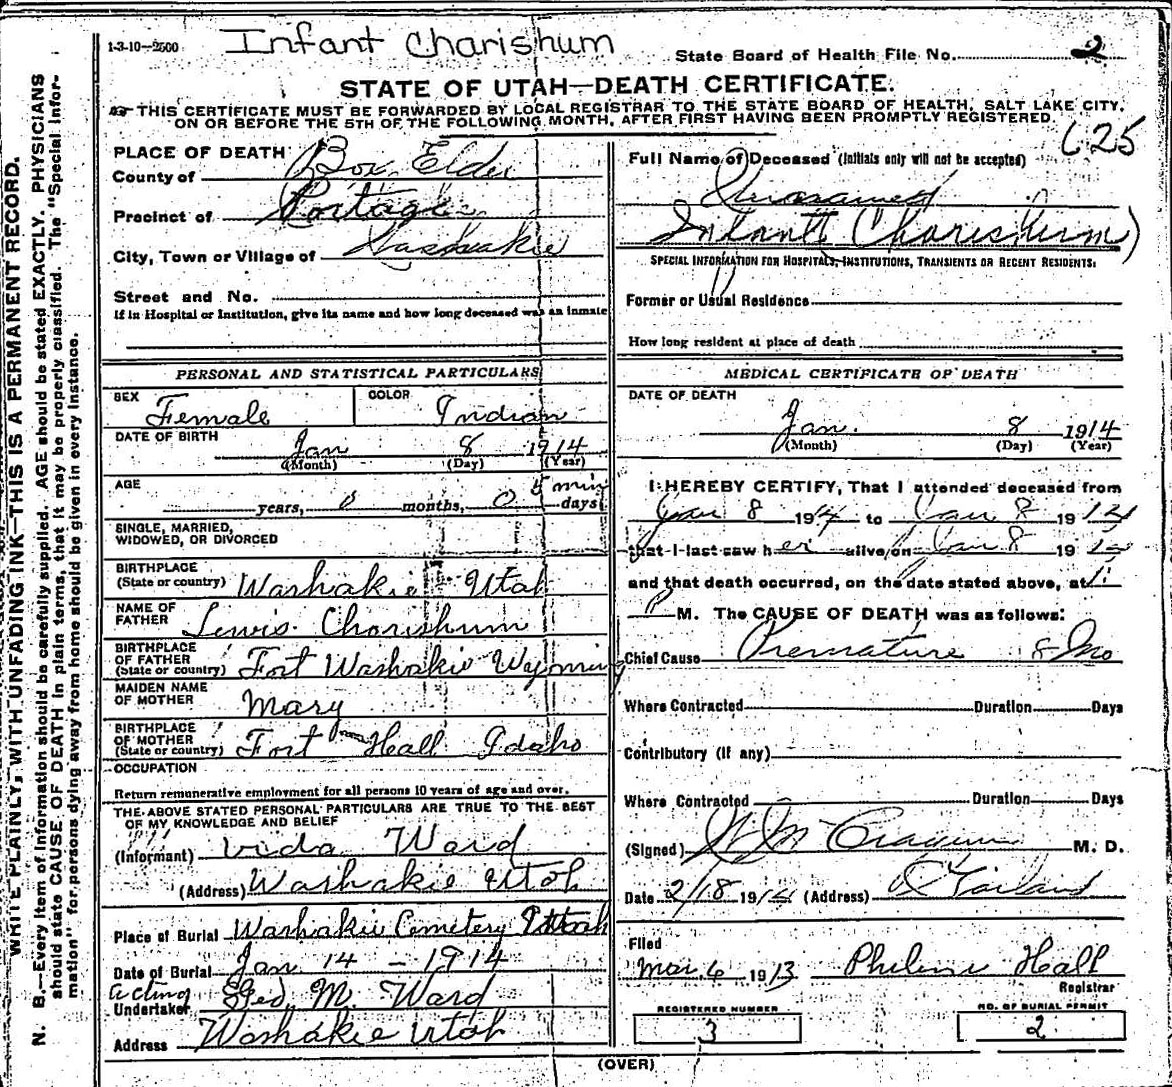 1-3-10—2500
Infant Charishum
State Board of Health File No. 2
STATE OF UTAH—DEATH CERTIFICATE.
THIS CERTIFICATE MUST BE FORWARDED BY LOCAL REGISTRAR TO THE STATE BOARD OF HEALTH, SALT LAKE CITY,
ON OR BEFORE THE 5TH OF THE FOLLOWING MONTH, AFTER FIRST HAVING BEEN PROMPTLY REGISTERED.
625
WRITE PLAINLY, WITH UNFADING INK—THIS IS A PERMANENT RECORD.
N. B.—Every item of information should be carefully supplied. AGE should be stated EXACTLY. PHYSICIANS
should state CAUSE OF DEATH in plain terms, that it may be properly classified. The "Special Infor-
mation" for persons dying away from home should be given in every instance.
PLACE OF DEATH
County of Box Elder
Precinct of Portage
City, Town or Village of Washakie
Street and No.
If in Hospital or Institution, give its name and how long deceased was an inmate
PERSONAL AND STATISTICAL PARTICULARS
SEX Female
COLOR Indian
DATE OF BIRTH Jan 8 1914
(Month) (Day) (Year)
AGE
years, 0 months, 0 days 5 min
SINGLE, MARRIED,
WIDOWED, OR DIVORCED
BIRTHPLACE
(State or country) Washakie - Utah
NAME OF
FATHER Lewis Charishum
BIRTHPLACE
OF FATHER
(State or country) Fort Washakie Wyoming
MAIDEN NAME
OF MOTHER Mary
BIRTHPLACE
OF MOTHER
(State or country) Fort Hall Idaho
OCCUPATION
Return remunerative employment for all persons 10 years of age and over.
THE ABOVE STATED PERSONAL PARTICULARS ARE TRUE TO THE BEST
OF MY KNOWLEDGE AND BELIEF
(Informant) Vida Ward
(Address) Washakie Utah
Place of Burial Washakie Cemetery Utah
Date of Burial Jan 14 - 1914
Acting
Undertaker Geo. M. Ward
Address Washakie Utah
Full Name of Deceased (Initials only will not be accepted)
Unnamed
Infant Charishum)
SPECIAL INFORMATION FOR HOSPITALS, INSTITUTIONS, TRANSIENTS OR RECENT RESIDENTS:
Former or Usual Residence
How long resident at place of death
MEDICAL CERTIFICATE OF DEATH
DATE OF DEATH
Jan. 8 1914
(Month) (Day) (Year)
I HEREBY CERTIFY, That I attended deceased from
Jan 8 1914 to Jan 8 1914
that I last saw her alive on Jan 8 1914
and that death occurred, on the date stated above, at 1
P M. The CAUSE OF DEATH was as follows:
Chief Cause Premature 8 Mo
Where Contracted Duration Days
Contributory (if any)
Where Contracted Duration Days
(Signed) M. D.
Date 2/18 1914 (Address) Garland
Filed
Mar. 6 1913 Philena Hall
Registrar
REGISTERED NUMBER
3
NO. OF BURIAL PERMIT
2
(OVER)